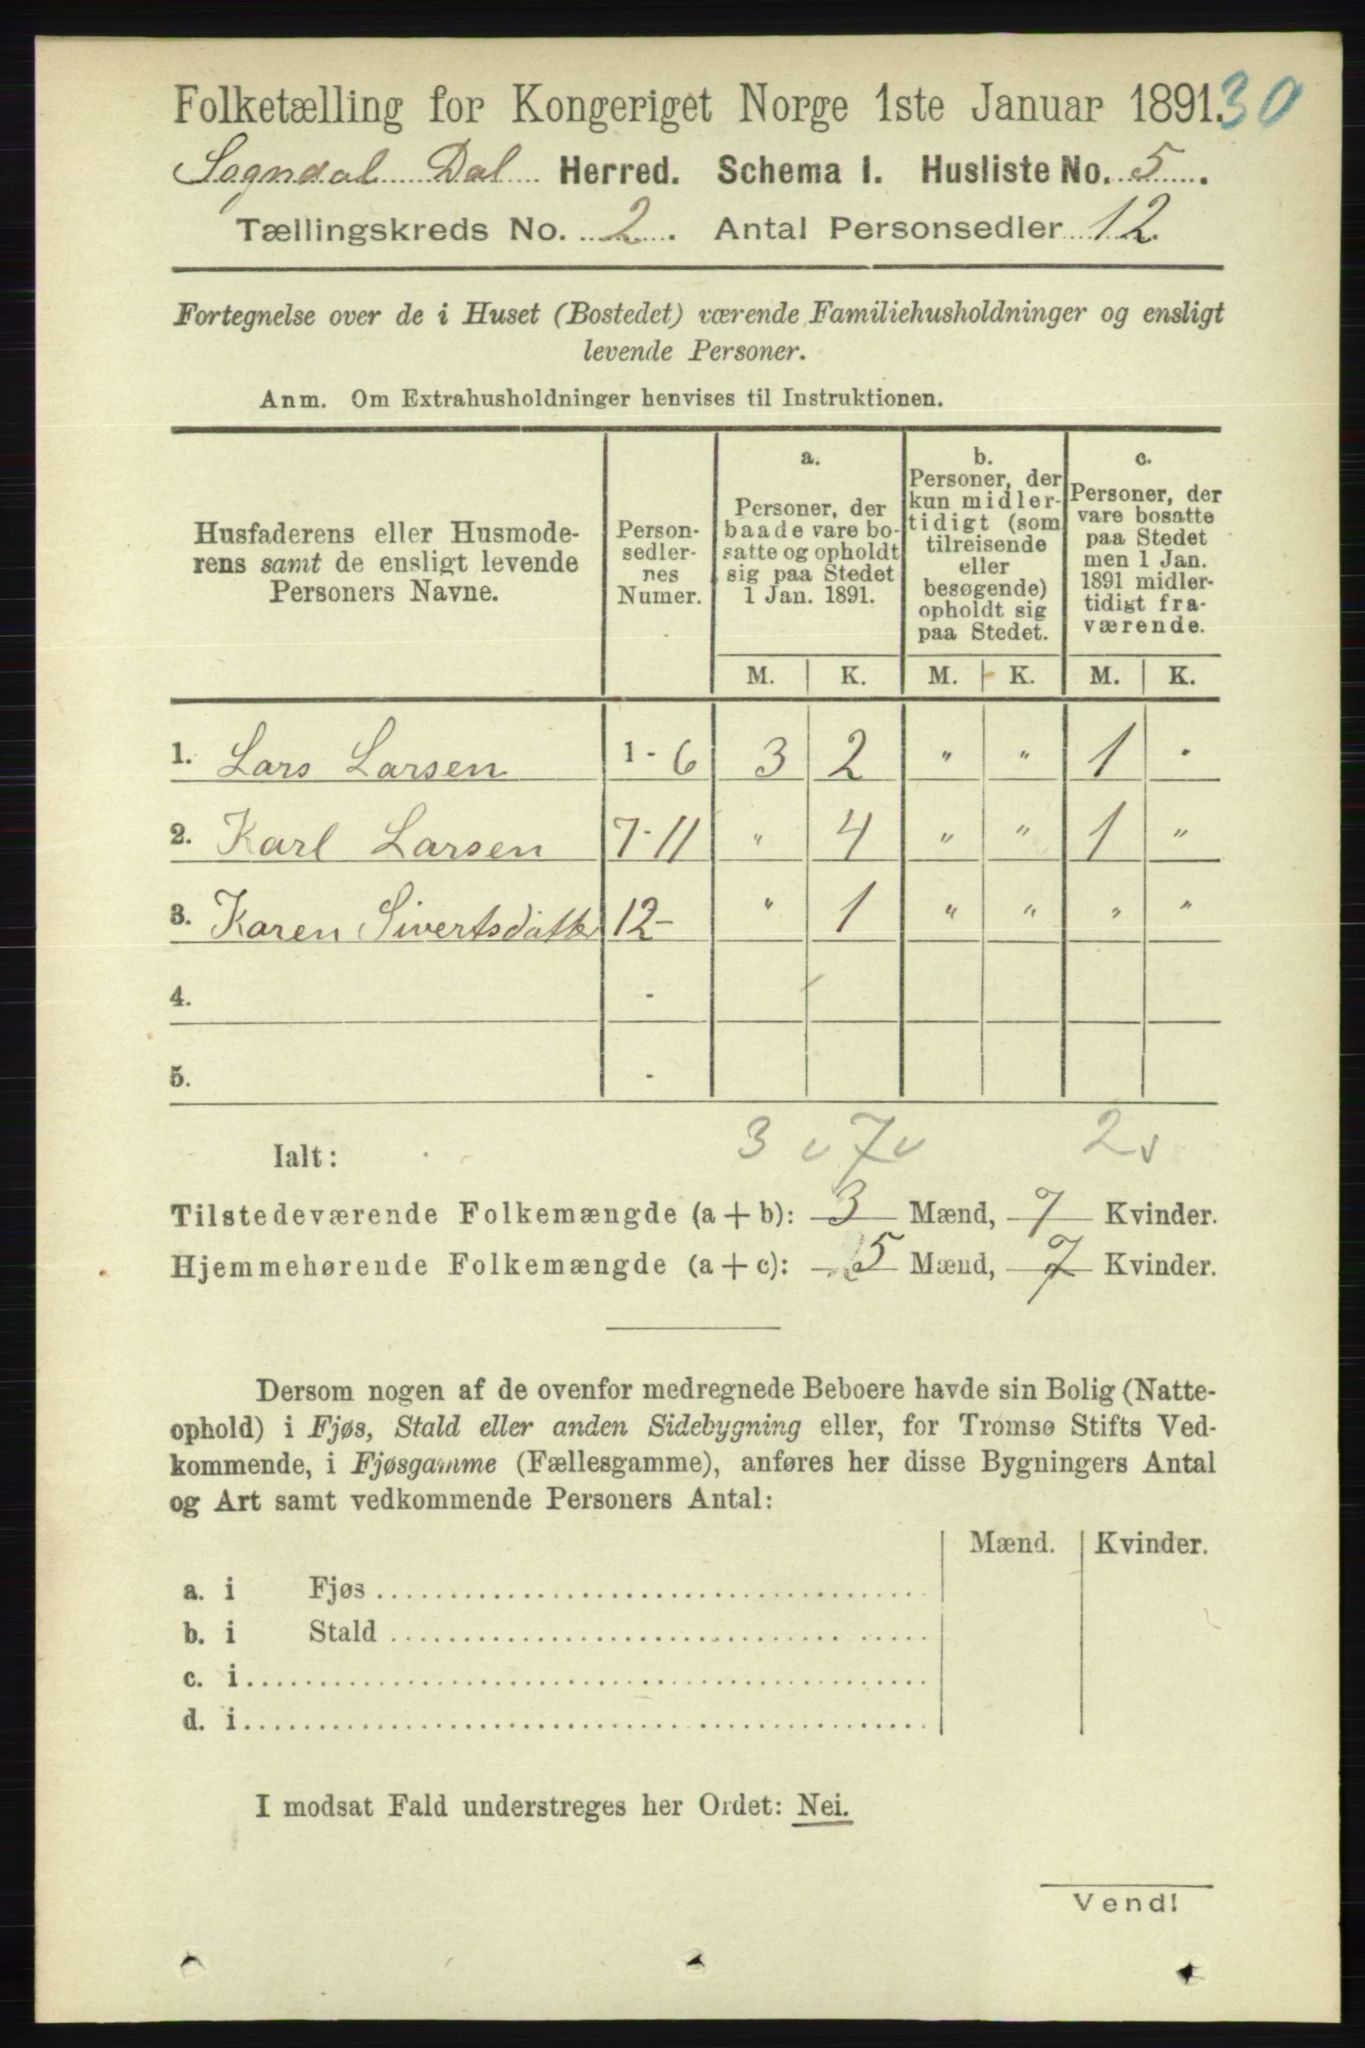 Folketælling for Kongeriget Norge 1ste Januar 1891. 30
Sogndal Dal Herred. Schema I. Husliste No. 5.
Tællingskreds No. 2. Antal Personsedler 12.
Fortegnelse over de i Huset (Bostedet) værende Familiehusholdninger og ensligt
levende Personer.
Anm. Om Extrahusholdninger henvises til Instruktionen.
Husfaderens eller Husmode-
rens samt de ensligt levende
Personers Navne.
Person-
sedler-
nes
Numer.
a.
Personer, der
baade vare bo-
satte og opholdt
sig paa Stedet
1 Jan. 1891.
b.
Personer, der
kun midler-
tidigt (som
tilreisende
eller
besøgende)
opholdt sig
paa Stedet.
c.
Personer, der
vare bosatte
paa Stedet
men 1 Jan.
1891 midler-
tidigt fra-
værende.
M. K. M. K. M. K.
1. Lars Larsen 1-6 3 2 " " 1 "
2. Karl Larsen 7-11 " 4 " " 1 "
3. Karen Sivertsdatter 12- " 1 " " " "
4. -
5. -
Ialt: 3 v 7 v 2 v
Tilstedeværende Folkemængde (a+b): 3 Mænd, 7 Kvinder.
Hjemmehørende Folkemængde (a+c): 5 Mænd, 7 Kvinder.
Dersom nogen af de ovenfor medregnede Beboere havde sin Bolig (Natte-
ophold) i Fjøs, Stald eller anden Sidebygning eller, for Tromsø Stifts Ved-
kommende, i Fjøsgamme (Fællesgamme), anføres her disse Bygningers Antal
og Art samt vedkommende Personers Antal:
Mænd. Kvinder.
a. i Fjøs
b. i Stald
c. i
d. i
I modsat Fald understreges her Ordet: Nei.
Vend!